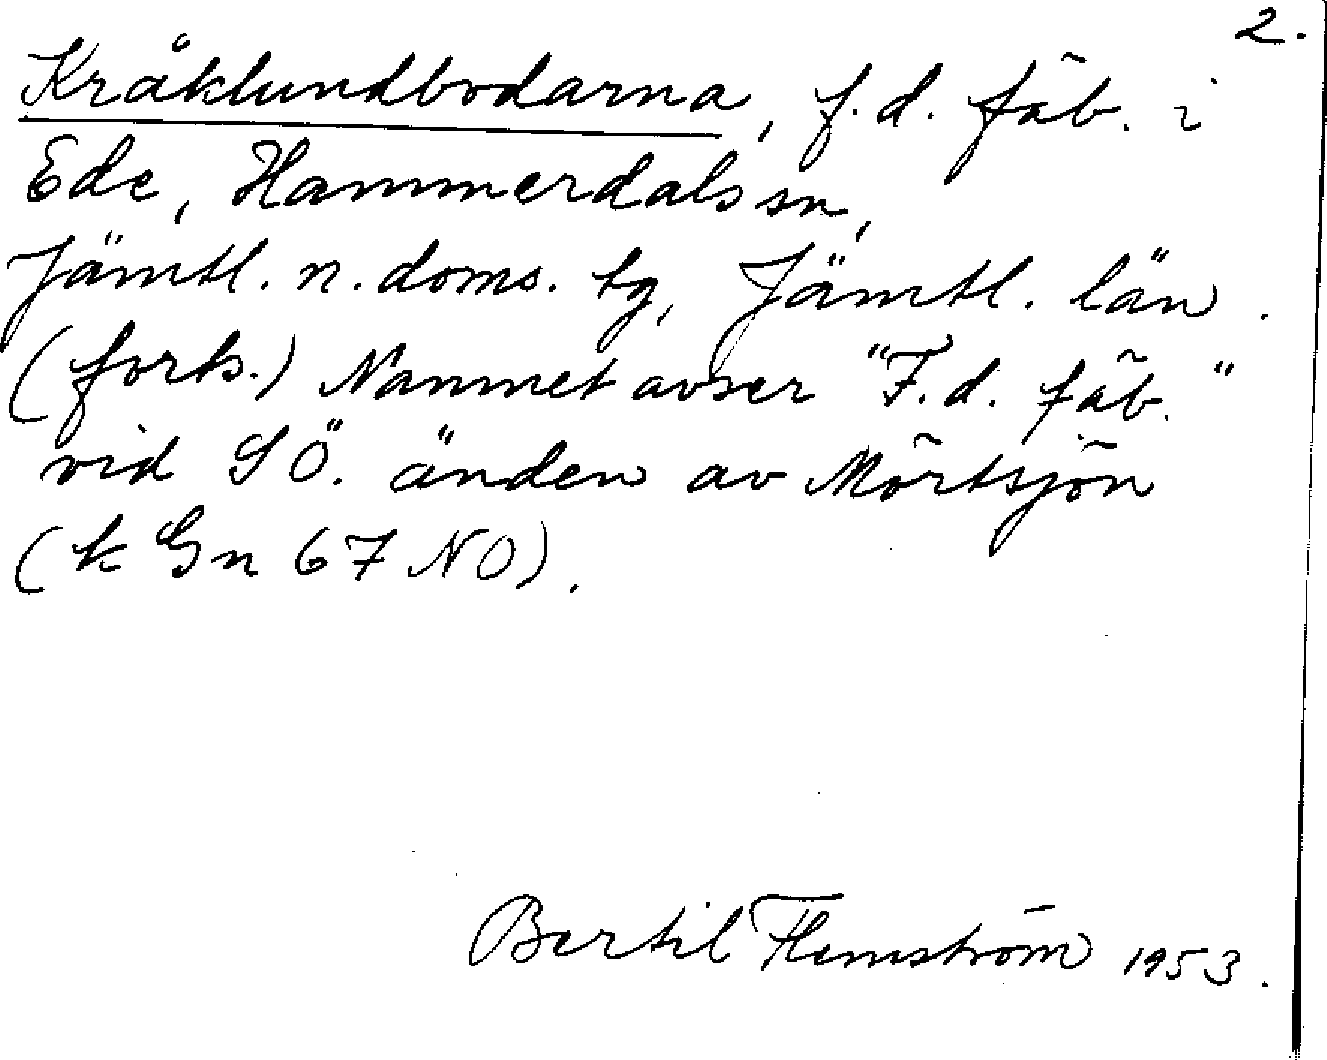 2.
Kråklundbodarna, f.d. fäb. i
Ede, Hammerdals sn,
Jämtl. n. doms. tg, Jämtl. län.
(forts.) Namnet avser "F.d. fäb."
vid SÖ. änden av Mörtsjön
(k Gn 67 NO).
Bertil Flemström 1953.